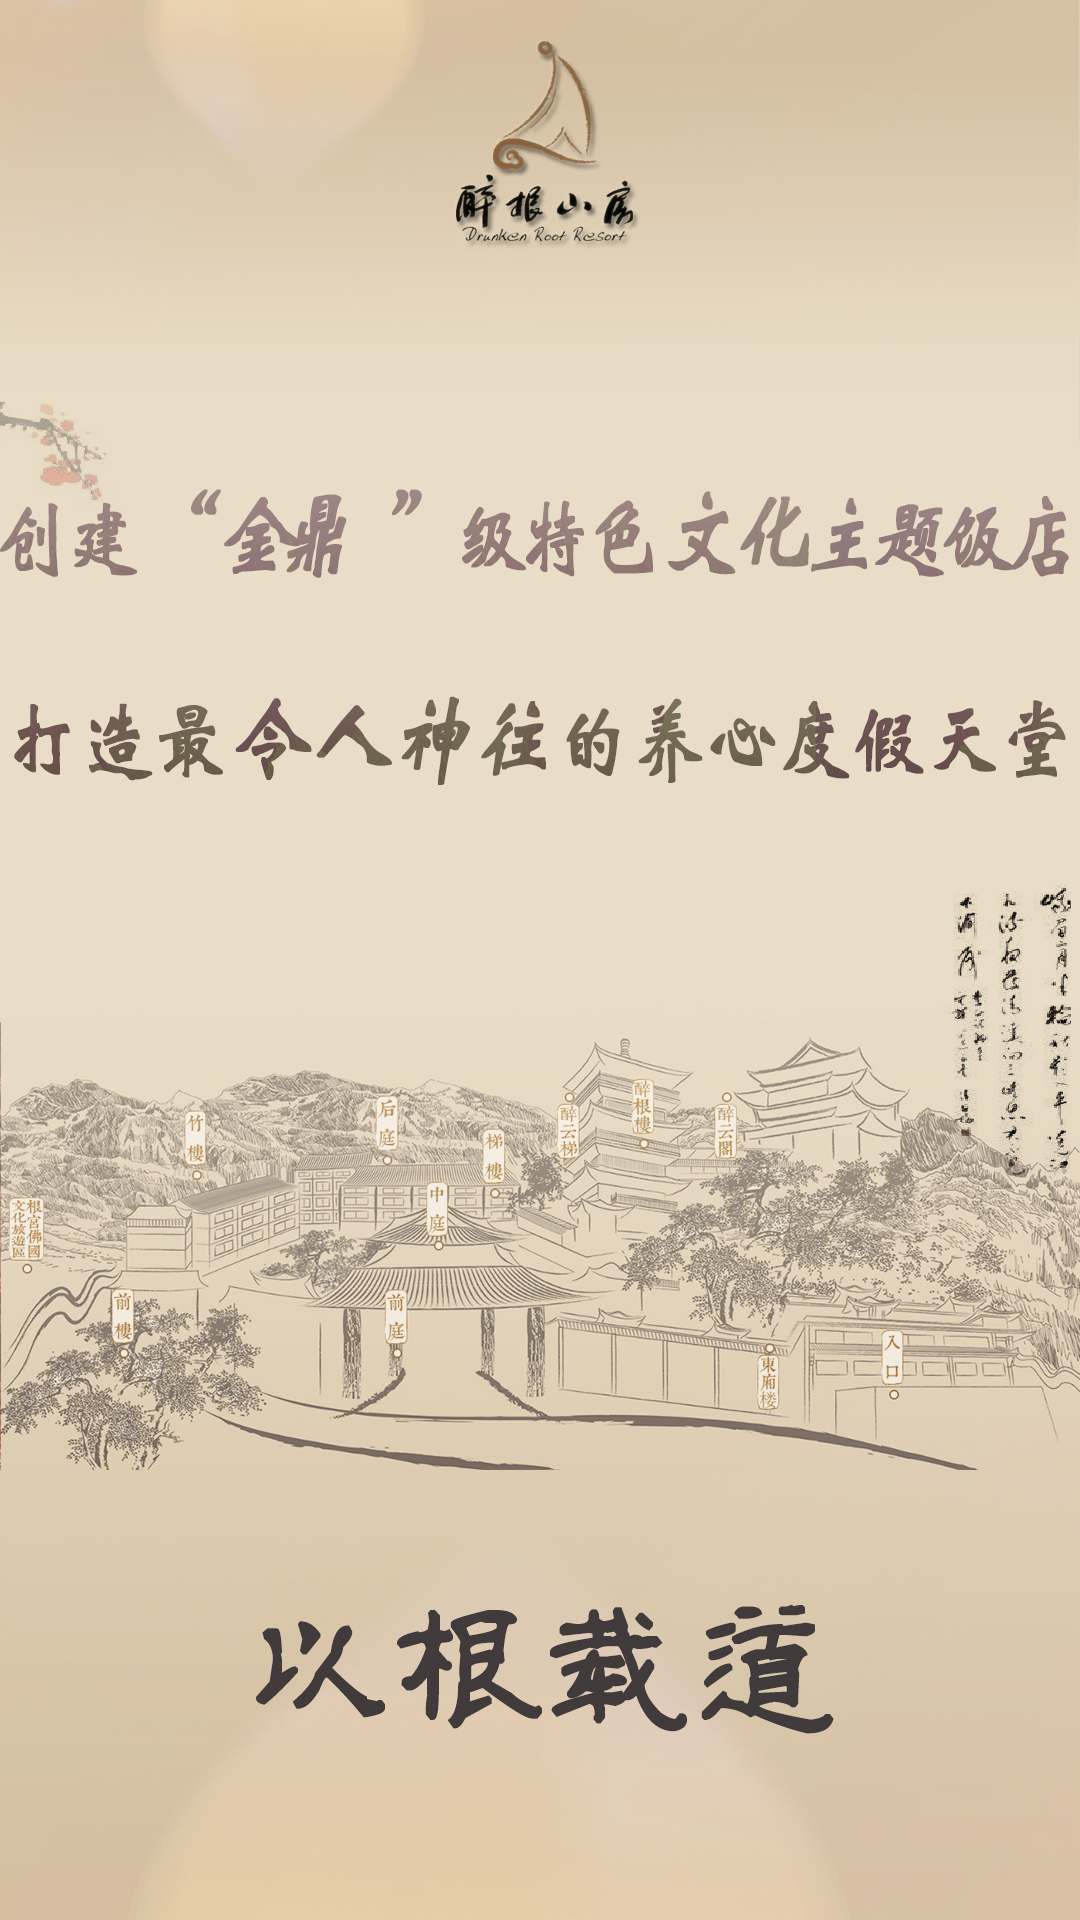 醉根山房
Drunken Root Resort
创建“金鼎”级特色文化主题饭店
打造最令人神往的养心度假天堂
醉根樓
后庭
醉云梯
醉云閣
竹樓
梯樓
中庭
根宮佛國
文化旅遊區
前樓
前庭
入口
東廂楼
以根载道